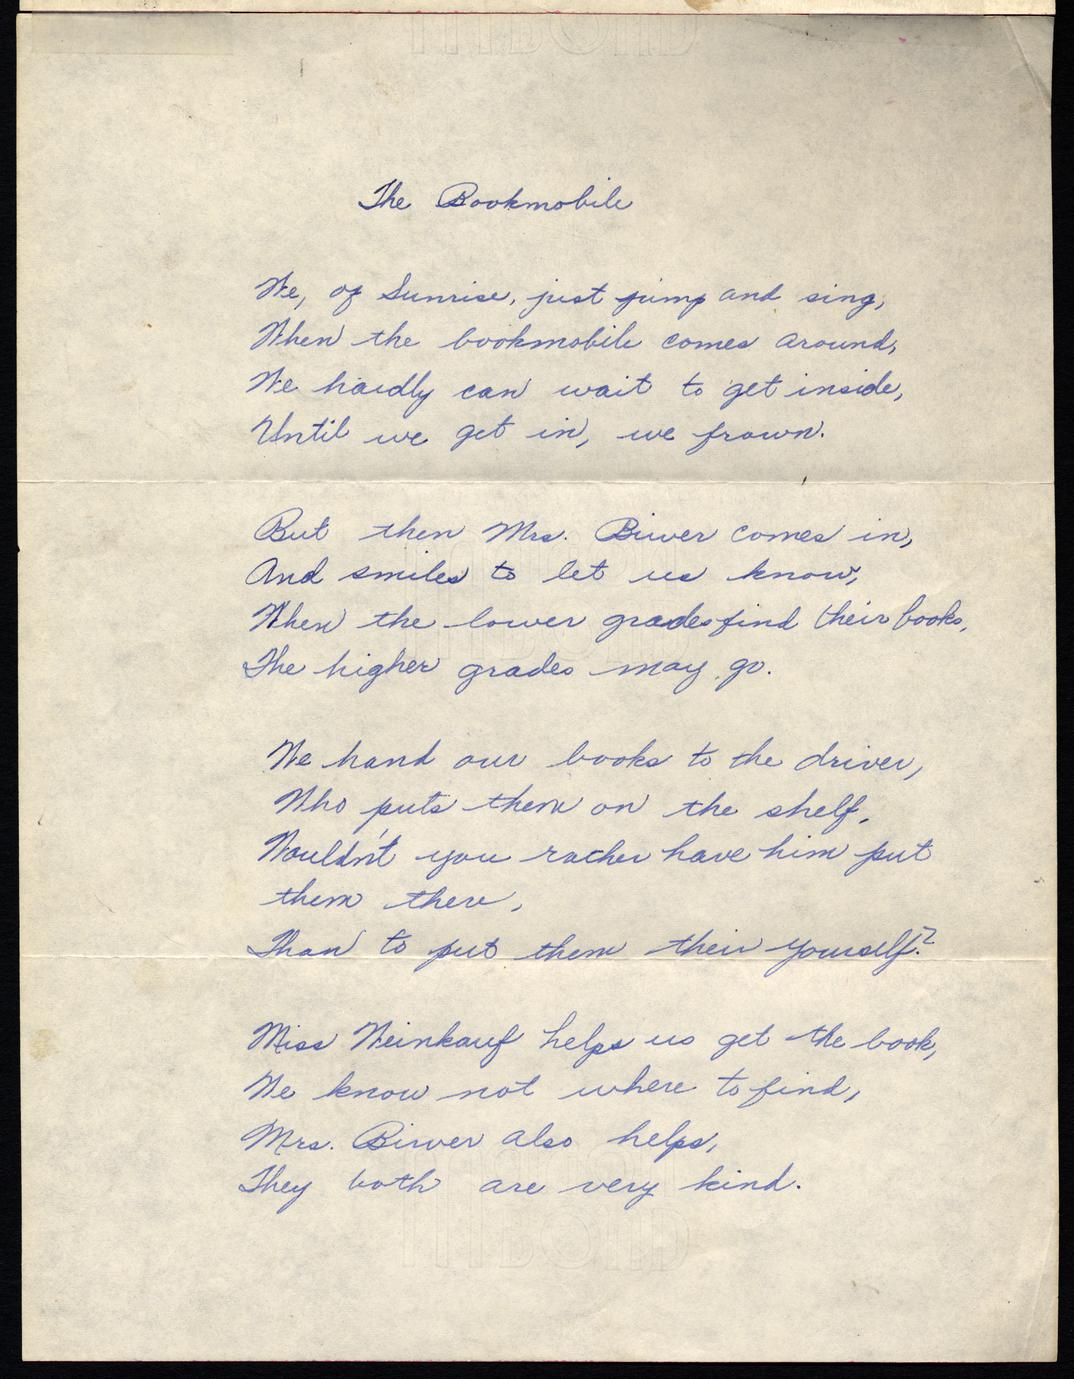 The Bookmobile
We, of Sunrise, just jump and sing,
When the bookmobile comes around,
We hardly can wait to get inside,
Until we get in, we frown.
But then Mrs. Biwer comes in,
And smiles to let us know,
When the lower grades find their books,
The higher grades may go.
We hand our books to the driver,
Who puts them on the shelf,
Wouldn't you rather have him put
them there,
Than to put them their yourself?
Miss Weinkauf helps us get the book,
We know not where to find,
Mrs. Biwer also helps,
They both are very kind.